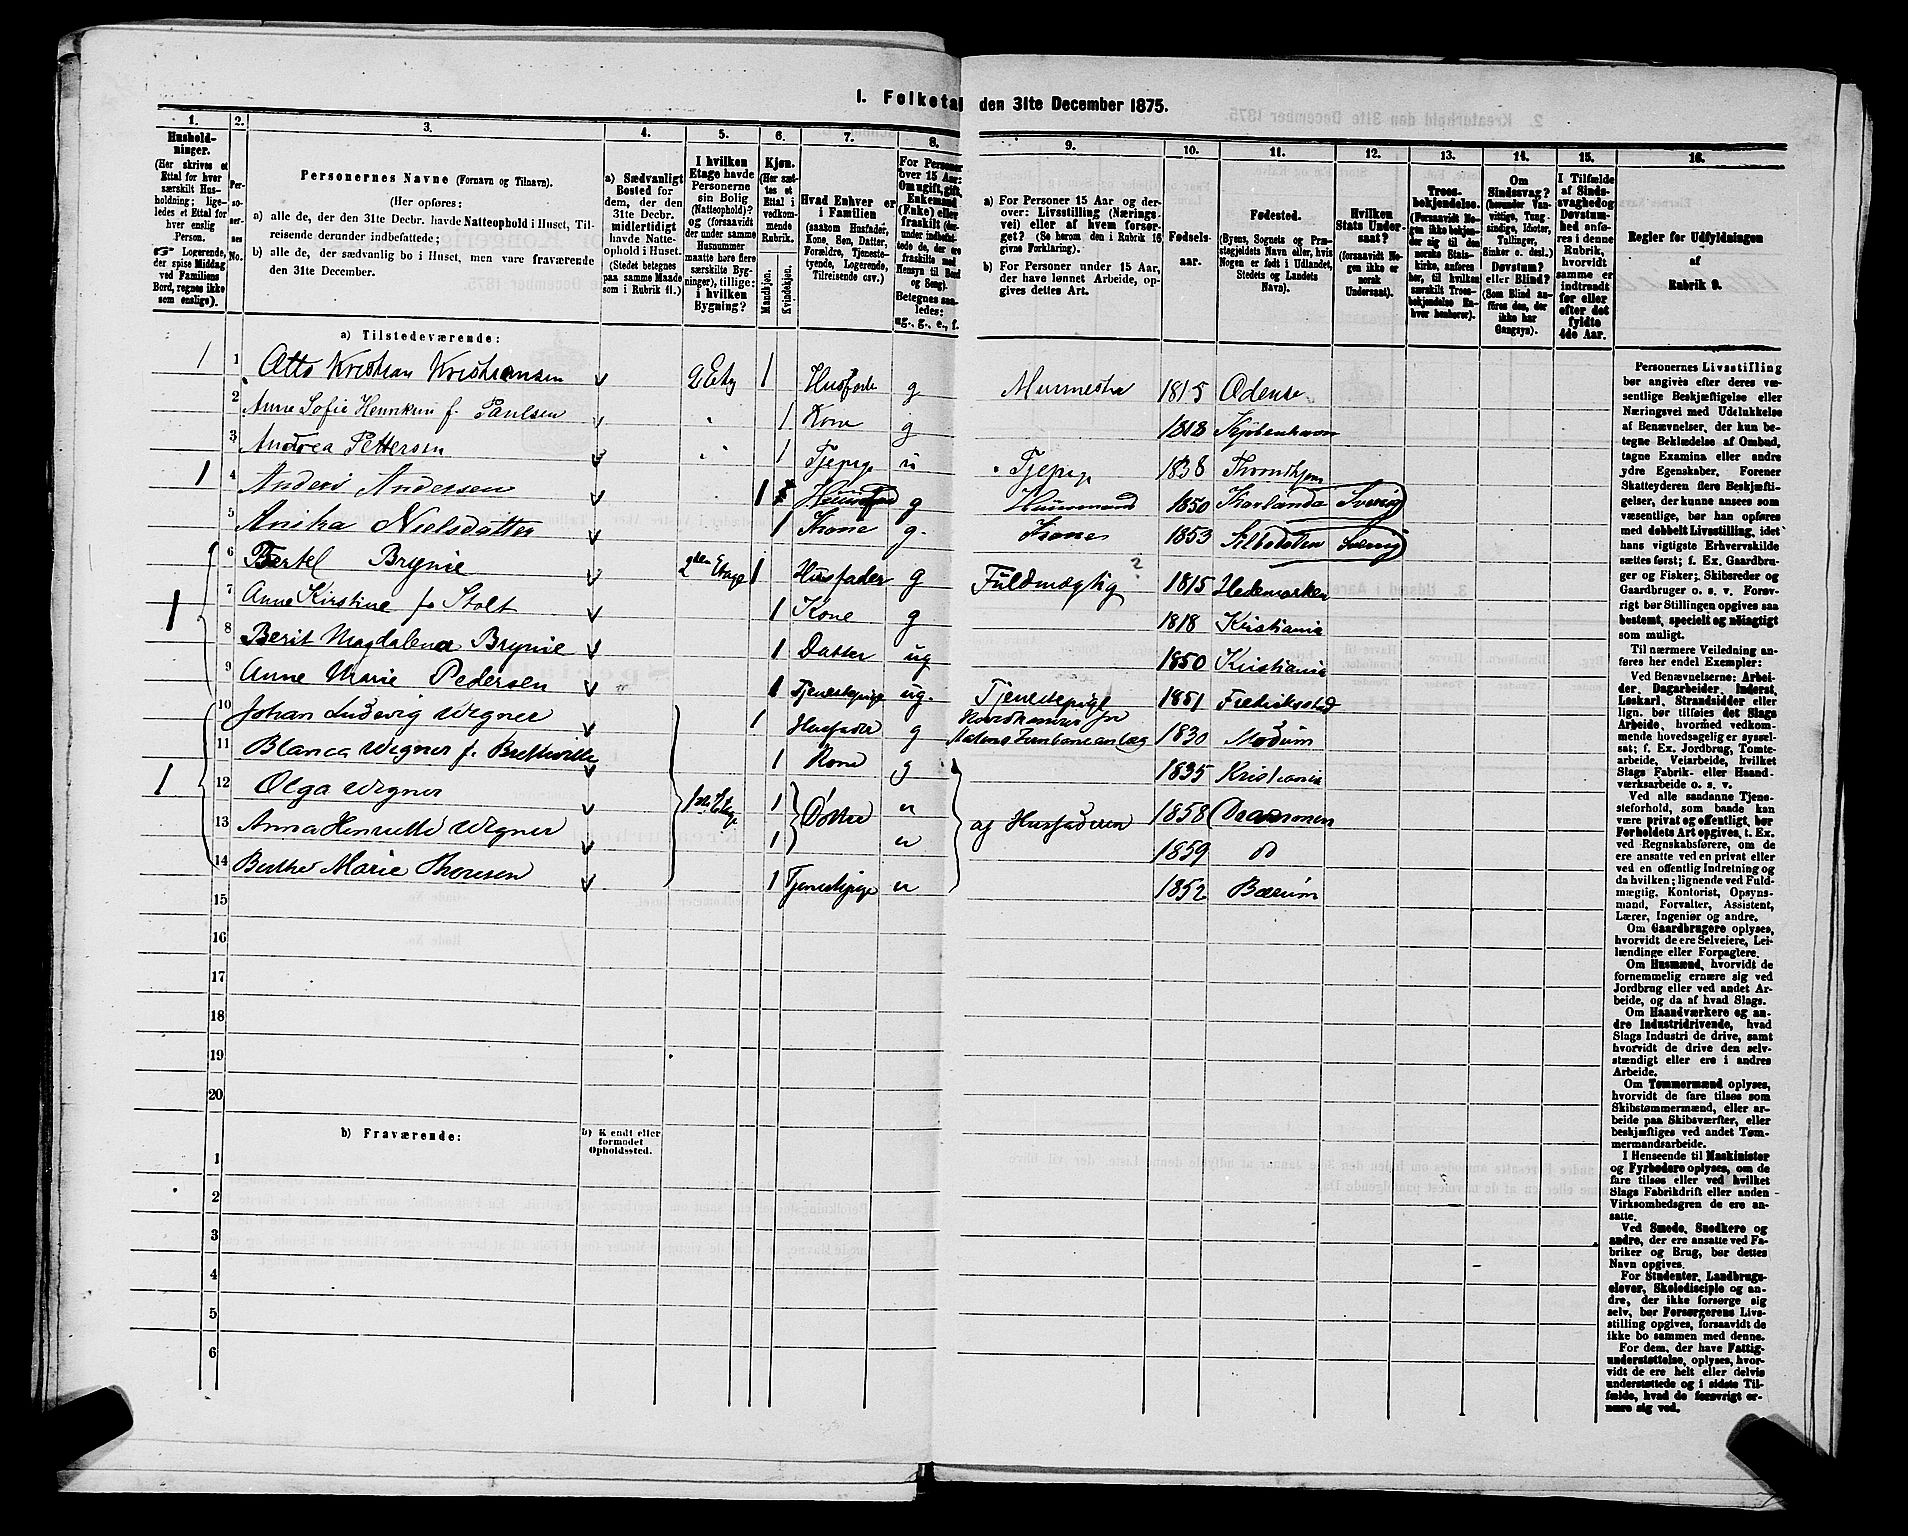 1. Folketal den 31te December 1875.
1. 2. 3. 4. 5. 6. 7. 8. 9. 10. 11. 12. 13. 14. 15. 16.
Hushold-
ninger.
(Her skrives et
Ettal for hver
særskilt Hus-
holdning; lige-
ledes et Ettal for
hver enslig
Person.
Logerende,
der spise Middag
ved Familiens
Bord, regnes ikke
som enslige).
Per-
so-
ner-
nes
No.
Personernes Navne (Fornavn og Tilnavn).
(Her opføres:
a) alle de, der den 31te Decbr. havde Natteophold i Huset, Til-
reisende derunder indbefattede;
b) alle de, der sædvanlig bo i Huset, men vare fraværende
den 31te December.
a) Sædvanligt
Bosted for
dem, der den
31te Decbr.
midlertidigt
havde Natte-
ophold i Huset.
(Stedet betegnes
paa samme Maade
som i Rubrik 11.)
I hvilken
Etage havde
Personerne
sin Bolig
(Natteophold)?
og (forsaavidt
der under samme
Husnummer
maatte høre flere
særskilte Byg-
ninger), tillige:
i hvilken
Bygning?
Kjøn.
(Her sæt-
tes et
Ettal i
vedkom-
mende
Rubrik.
Mandkjøn.
Kvindekjøn.
Hvad Enhver er
i Familien
(saasom Husfader,
Kone, Søn, Datter,
Forældre, Tjeneste-
tyende, Logerende,
Tilreisende osv.)
For Personer
over 15 Aar:
Om ugift, gift,
Enkemand
(Enke) eller
fraskilt (der-
under indbefat-
tede de, der ere
fraskilte med
Hensyn til Bord
og Seng).
Betegnes saa-
ledes:
ug., g., e., f.
a) For Personer 15 Aar og der-
over: Livsstilling (Nærings-
vei) eller af hvem forsør-
get? (Se herom den i Rubrik 16
givne Forklaring).
b) For Personer under 15 Aar,
der have lønnet Arbeide, op-
gives dettes Art.
Fødsels-
aar.
Fødested.
(Byens, Sognets og Præ-
stegjeldets Navn eller, hvis
Nogen er født i Udlandet,
Stedets og Landets
Navn).
Hvilken
Stats Under-
saat?
(forsaavidt No-
gen ikke er
norsk
Undersaat).
Troes-
bekjendelse.
(Forsaavidt No-
gen ikke bekjen-
der sig til den
norske Stats-
kirke, anføres
her, til hvilken
særskilt Troes-
bekjendelse En-
hver henhører).
Om
Sindssvag?
(herunder Van-
vittige, Tung-
sindige, Idioter,
Tullinger,
Sinker o. desl.)
Døvstum?
eller Blind?
(Som Blind an-
føres den, der
ikke har
Gangsyn).
I Tilfælde
af Sinds-
svaghed og
Døvstum-
hed anføres
i denne
Rubrik,
hvorvidt
samme er
indtraadt
før eller
efter det
fyldte
4de Aar.
Regler for Udfyldningen
af
Rubrik 9.
a) Tilstedeværende:
1 1 Otto Kristian Kristiansen 2 Etg 1 Husfade g Murmester 1815 Odense
2 Anne Sofie Henriksen f. Paulsen 1 Kone g 1818 Kjøbenhavn
3 Andrea Pettersen 1 Tjepige u Tjepig 1838 Trondhjem
1 4 Anders Andersen 1 g Huusmand 1850 Karlanda Sverig
5 Anika Nielsdatter 1 Kone g. Kone 1853 Sverig
6 Bertel Brynie 2den Etage 1 Husfader g Fuldmægtig ? 1815 Hedemarken
1 7 Anne Kirstine f. Stolt 1 Kone g 1818 Kristiania
8 Berit Magdalena Brynie 1 Datter ug 1850 Kristiania
9 Anne Marie Pedersen 1 Tjenestepige ug. Tjenestepige 1851 Fredriksstad
10 Johan Ludevig Wegner 1 Husfader g 1830 Modum
11 Blanca Wegner f. Bretteville 1 Kone g 1835 Kristiania
1 12 Olga Wegner 1ste Etage 1 Døttre u af Husfaderen 1858 Drammen
13 Anna Henriette Wegner 1 u 1859 do
14 Berthe Marie Thoresen 1 Tjenestepige u 1852 Bærum
15
16
17
18
19
20
b) Fraværende:
b) Kjendt eller
formodet
Opholdssted.
1
2
3
4
5
6
Personernes Livsstilling
bør angives efter deres væ-
sentlige Beskjæftigelse eller
Næringsvei med Udelukkelse
af Benævnelser, der kun be-
tegne Beklædelse af Ombud,
tagne Examina eller andre
ydre Egenskaber. Forener
Skatteyderen flere Beskjæfti-
gelser, der kunne ansees som
væsentlige, bør han opføres
med dobbelt Livsstilling, idet
hans vigtigste Erhvervskilde
sættes først; f. Ex. Gaardbru-
ger og Fisker; Skibsreder og
Gaardbruger o. s. v. Forøv-
rigt bør Stillingen opgives saa
bestemt, specielt og nøiagtigt
som muligt.
Til nærmere Veiledning an-
føres her endel Exempler:
Ved Benævnelserne: Arbei-
der, Dagarbeider, Inderst,
Løskarl, Strandsidder eller
lign. bør tilføies det Slags
Arbeide, hvormed vedkom-
mende hovedsagelig er syssel-
sat; f. Ex. Jordbrug, Tomte-
arbeide, Veiarbeide, hvilket
Slags Fabrik- eller Haand-
værksarbeide o. s. v.
Ved alle saadanne Tjene-
steforhold, som baade kan
være privat og offentligt, bør
Forholdets Art opgives, t. Ex.
ved Regnskabsførere, om de
ere ansatte ved en privat eller
ved en offentlig Indretning og
da hvilken; lignende ved Fuld-
mægtig, Kontorist, Opsyns-
mand, Forvalter, Assistent,
Lærer, Ingeniør og andre.
Om Gaardbrugere oplyses,
hvorvidt de ere Selveiere, Lei-
lændinge eller Forpagtere.
Om Husmænd, hvorvidt de
fornemmelig ernære sig ved
Jordbrug eller ved andet Ar-
beide, og da af hvad Slags.
Om Haandværkere og an-
dre Industridrivende, hvad
Slags Industri de drive, samt
hvorvidt de drive den selv-
stændigt eller ere i andres
Arbeide.
Om Tømmermænd oplyses,
hvorvidt de fare tilsøs som
Skibstømmermænd, eller ar-
beide paa Skibsværfter, eller
beskjæftiges ved andet Tøm-
mermandsarbeide.
I Henseende til Maskinister
og Fyrbødere oplyses, om de
fare tilsøs eller ved hvilket
Slags Fabrikdrift eller anden
Virksomhedsgren de ere an-
satte.
Ved Smede, Snedkere og
andre, der ere ansatte ved Fa-
briker og Brug, bør dettes
Navn opgives.
For Studenter, Landbrugs-
elever, Skoledisciple og an-
dre, der ikke forsørge sig
selv, bør Forsørgerens Livs-
stilling opgives, forsaavidt de
ikke bo sammen med denne.
For dem, der have Fattig-
understøttelse, oplyses, hvor-
vidt de ere helt eller delvis
understøttede og i sidste Til-
fælde, hvad de forøvrigt er-
nære sig ved.